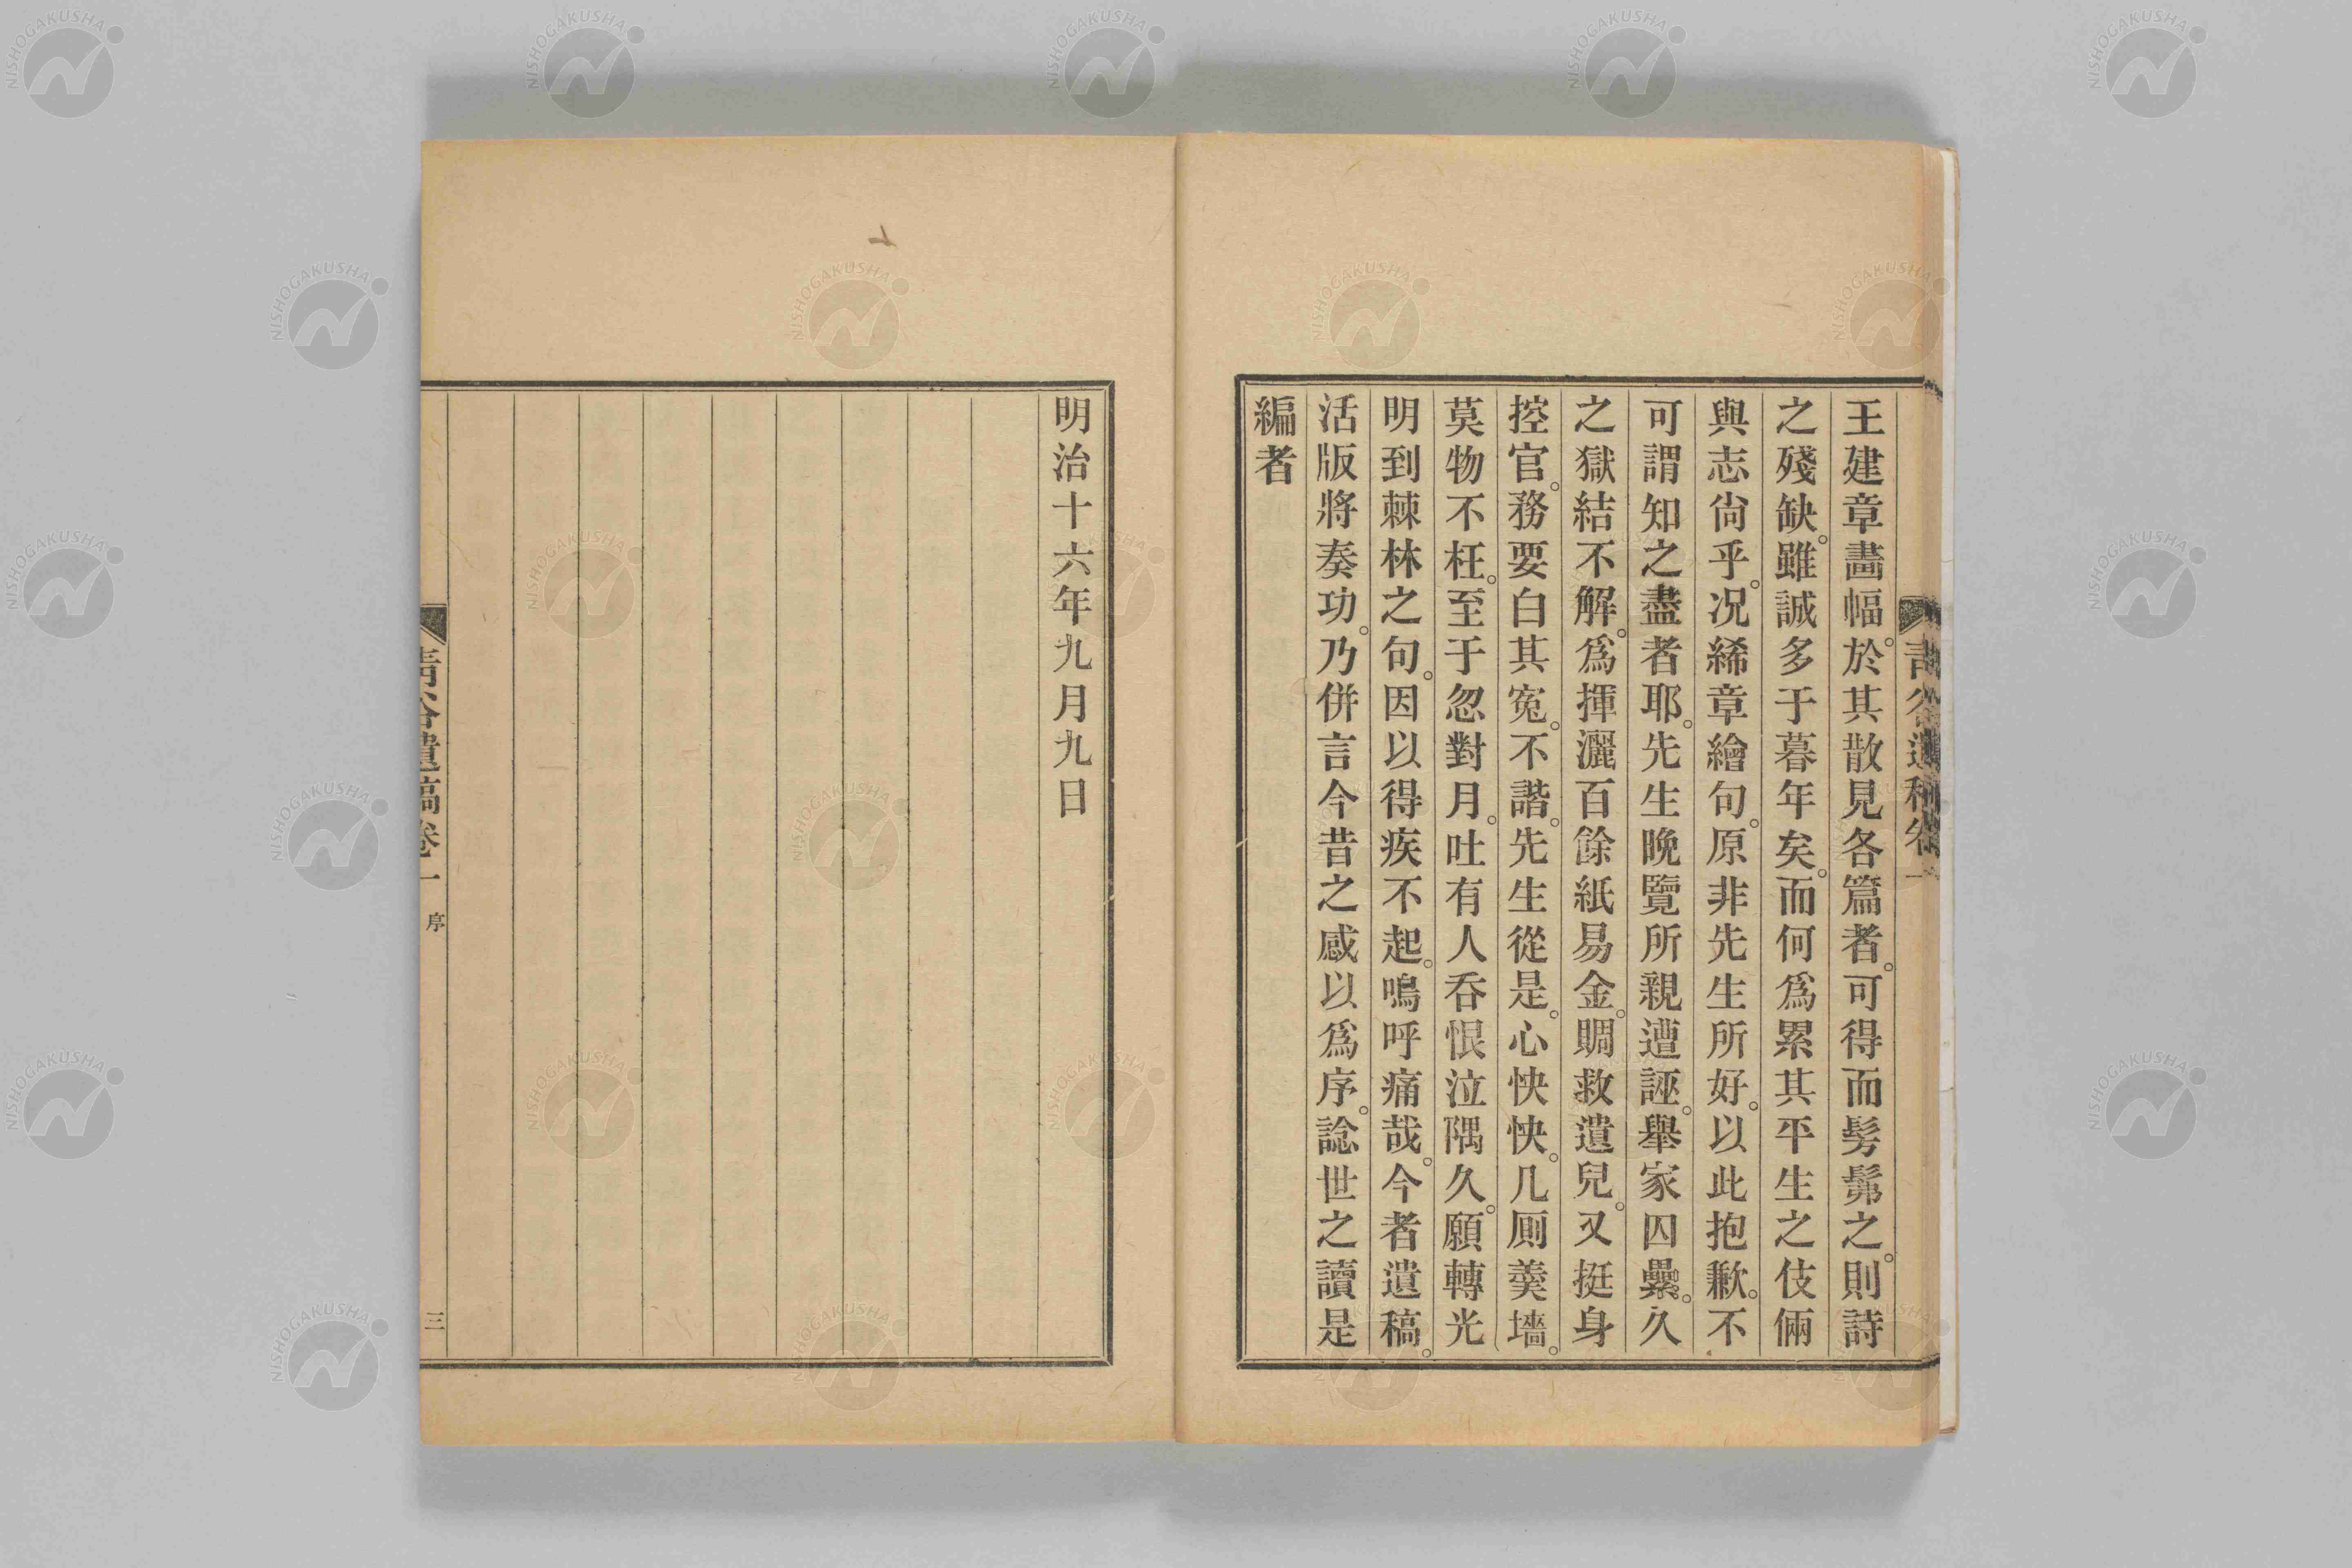 王建章畵幅。於其散見各篇者。可得而髣髴之。則詩
之殘缺。雖誠多于暮年矣。而何爲累其平生之伎倆
與志尙乎。况絺章繪句。原非先生所好。以此抱歉。不
可謂知之盡者耶。先生晚覽所親遭誣。舉家囚纍。久
之獄結不解。爲揮灑百餘紙易金。賙救遺兒。又挺身
控官。務要白其寃。不諧。先生從是。心怏怏。几厠羹墻。
莫物不枉。至于忽對月。吐有人呑恨泣隅久。願轉光
明到棘林之句。因以得疾不起。嗚呼痛哉。今者遺稿。
活版將奏功。乃併言今昔之感以爲序。諗世之讀是
編者
明治十六年九月九日
遺稿卷一 序
三
NISHOGAKUSHA